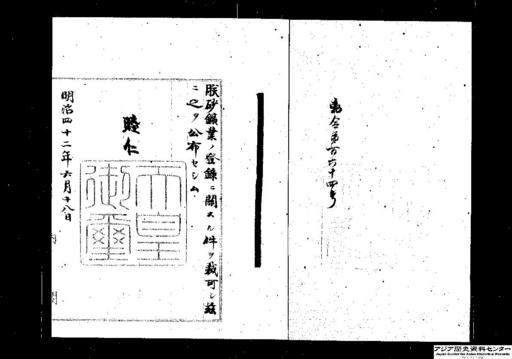 勅令第百六十四号
朕砂鑛業ノ登錄ニ關スル件ヲ裁可シ茲
ニ之ヲ公布セシム
睦仁
天皇
御璽
明治四十二年六月十八日
内閣
アジア歴史資料センター
Japan Center for Asian Historical Records